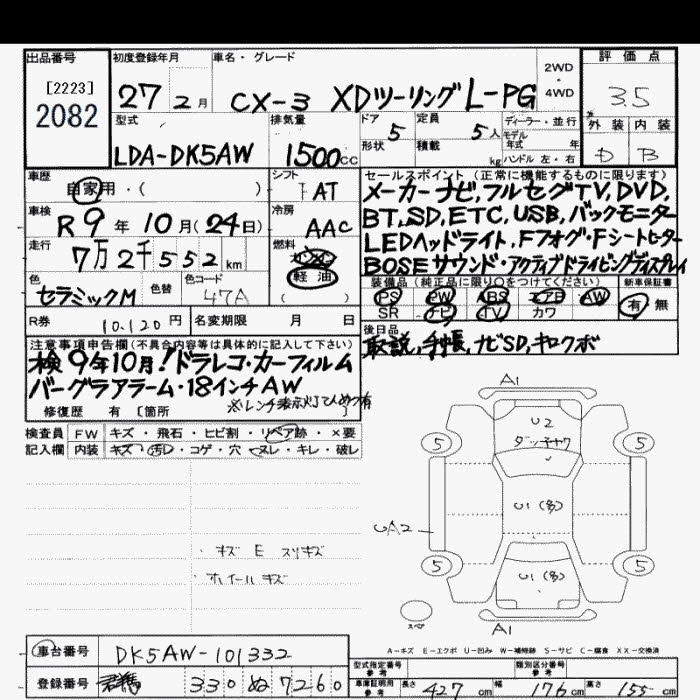 出品番号 初度登録年月 車名・グレード 2WD・4WD 評価点
[2223]
2082
27 2月 CX-3 XDツーリングL-PG 3.5
型式 排気量 ドア 5 定員 5人 ディーラー・並行 外装 内装
LDA-DK5AW 1500cc 形状 積載 kg モデル年式 年 ハンドル 左・右 D B
車歴 シフト セールスポイント (正常に機能するものに限ります)
自家用・( ) AT メーカーナビ,フルセグTV,DVD,
車検 冷房 BT,SD,ETC,USB,バックモニター
R9年10月(24日) AAC LEDヘッドライト,Fフォグ・Fシートヒーター
走行 燃料 BOSEサウンド・アクティブドライビングディスプレイ
7万2千552km ガソリン 軽油 ( )
装備品 (純正品に限り○をつけてください) 新車保証書
色 色替 色コード PS PW ABS エアB AW 有 無
セラミックM 47A SR ナビ TV カワ
R券 10.120円 名変期限 月 日 後日品
取説,手帳,ナビSD,キロクボ
注意事項申告欄(不具合内容等は具体的に記入して下さい)
検9年10月!ドラレコ・カーフィルム
バーグラアラーム・18インチAW
修復歴 有 [箇所 ]
検査員記入欄 FW キズ・飛石・ヒビ割・リペア跡・×要
内装 キズ・汚レ・コゲ・穴・スレ・キレ・破レ
A1
U2
5 5
U1(多)
UA2
・キズ E スリキズ
ホイールキズ
5 5
U1(多)
スペア
A1
A-キズ E-エクボ U-凹み W-補修跡 S-サビ C-腐食 XX-交換済
車台番号 DK5AW-101332
型式指定番号 参考 類別区分番号 参考
登録番号 群馬 330 ぬ 7260
車庫証明用 参考 長さ 427cm 幅 176cm 高さ 155cm